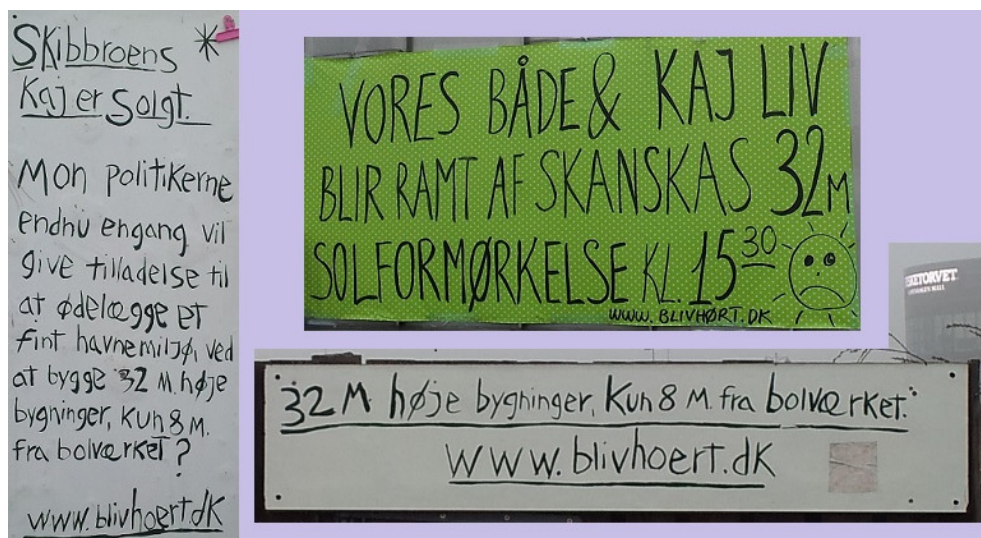 Skibbroens *
Kaj er Solgt.
Mon politikerne
endnu engang vil
give tilladelse til
at ødelægge et
fint havnemiljø, ved
at bygge 32 M. høje
bygninger, Kun 8 M.
fra bolværket?
www.blivhoert.dk
VORES BÅDE & KAJ LIV
BLIR RAMT AF SKANSKAS 32M
SOLFORMØRKELSE KL. 15 30
WWW. BLIVHØRT.DK
32 M. høje bygninger, Kun 8 M. fra bolværket.
www.blivhoert.dk